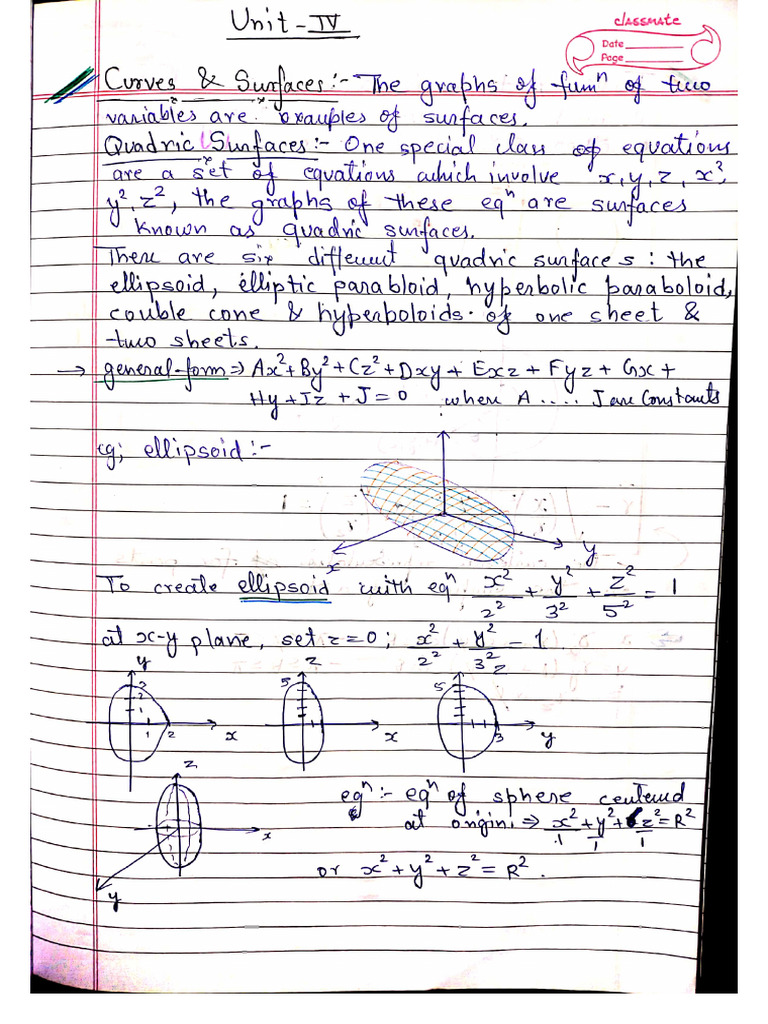 Unit - IV
classmate
Date
Page
Curves & Surfaces :- The graphs of funⁿ of two
variables are examples of surfaces.
Quadric Surfaces :- One special class of equations
are a set of equations which involve x, y, z, x²,
y², z², the graphs of these eqⁿ are surfaces
known as quadric surfaces.
There are six different quadric surfaces : the
ellipsoid, elliptic parabloid, hyperbolic paraboloid,
couble cone & hyperboloids of one sheet &
two sheets.
→ general-form ⇒ Ax² + By² + Cz² + Dxy + Exz + Fyz + Gx +
Hy + Iz + J = 0 where A .... J are Constants
eg; ellipsoid :-
x
y
To create ellipsoid with eqⁿ. x²/2² + y²/3² + z²/5² = 1
at x-y plane, set z=0 ; x²/2² + y²/3² - 1
y 3 2 1 1 2 x
z 5 x
z 5 3 y
z
x
y
eqⁿ :- eqⁿ of sphere centered
at origin. ⇒ x²/1 + y²/1 + z²/1 = R²
or x² + y² + z² = R² .